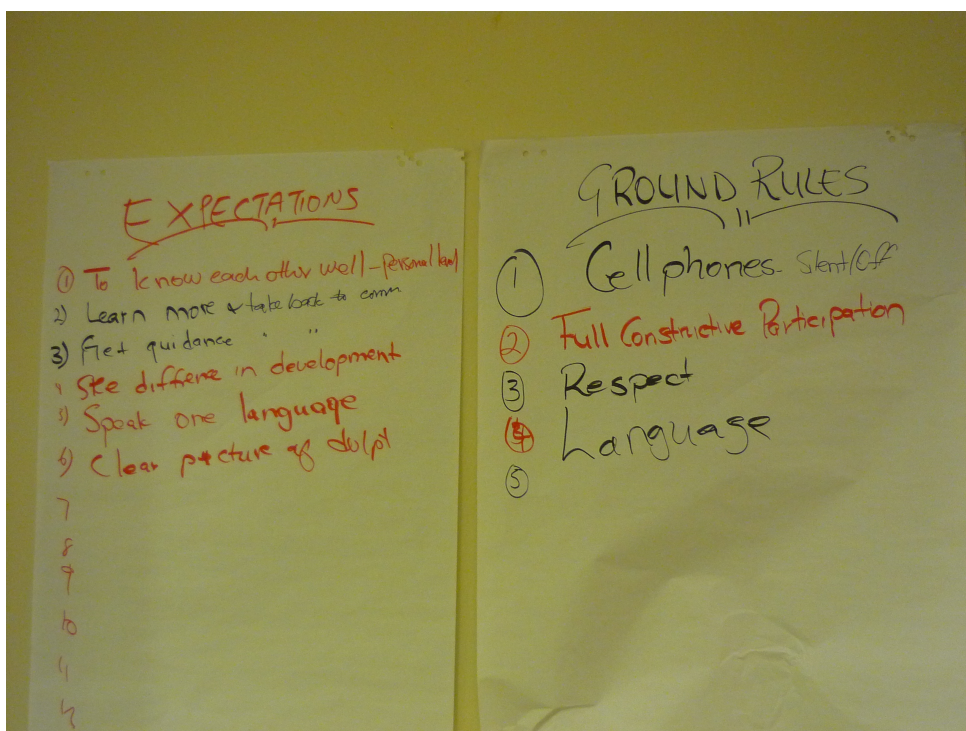 EXPECTATIONS
① To know each other well - Personal level
2) Learn more & take back to comm
3) Get guidance " "
See differe in development
5) Speak one language
6) Clear picture of dvlpt
7
8
9
10
11
12
GROUND RULES
① Cellphones - Silent/Off
② Full Constructive Participation
③ Respect
④ Language
⑤